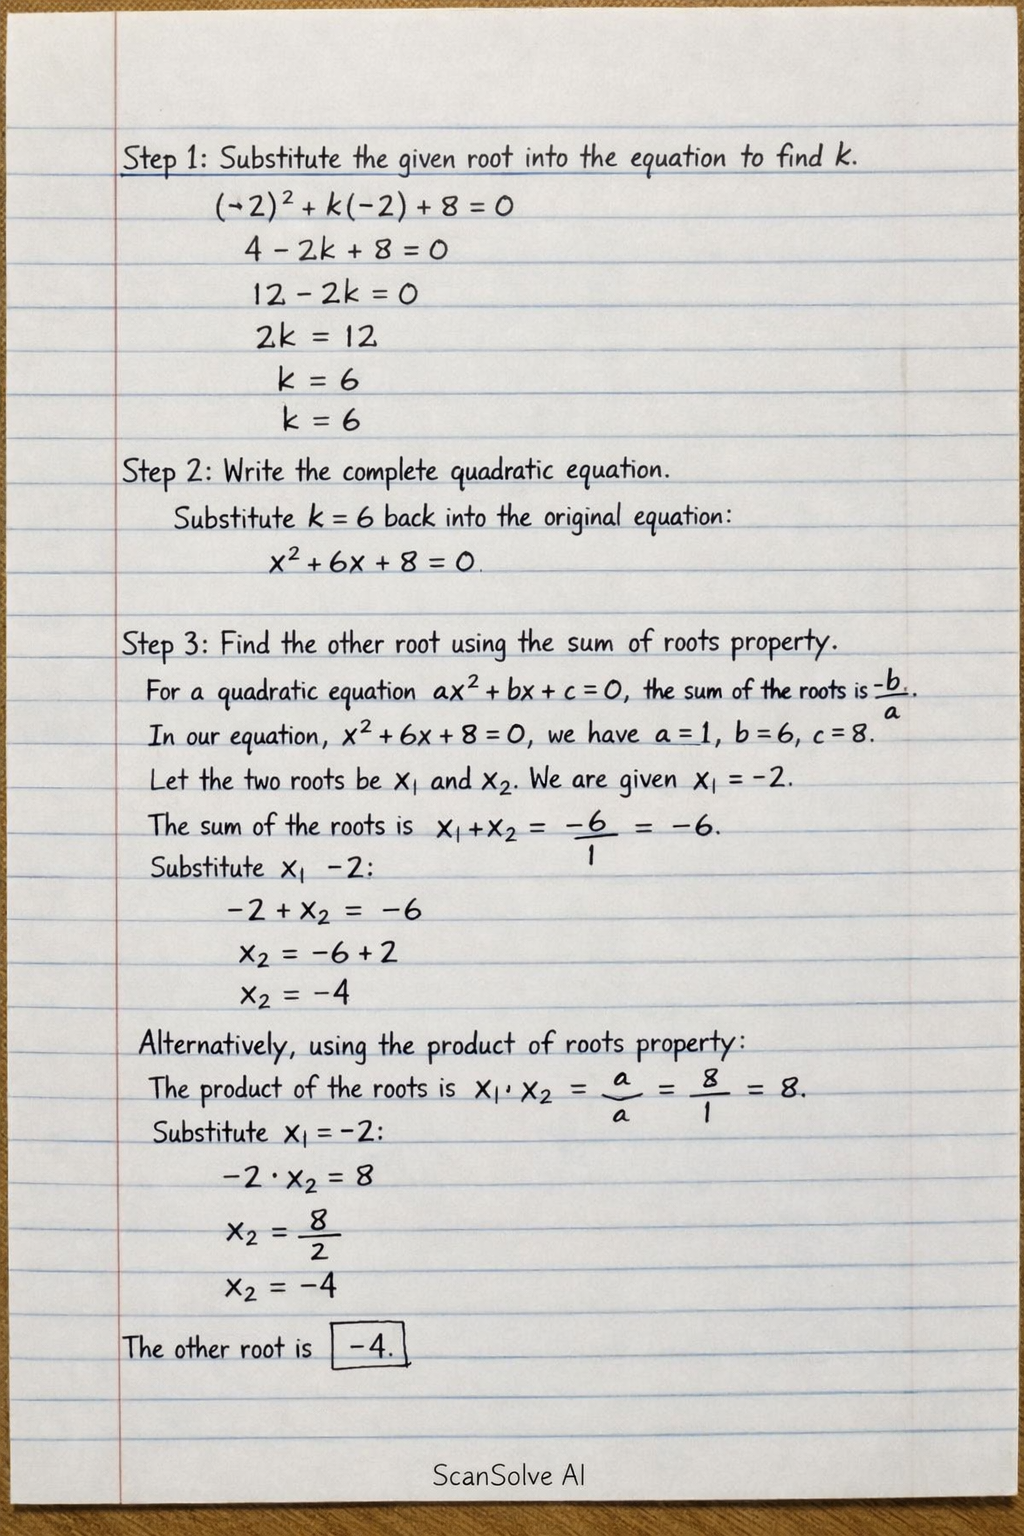 Step 1: Substitute the given root into the equation to find k.
(-2)² + k(-2) + 8 = 0
4 - 2k + 8 = 0
12 - 2k = 0
2k = 12
k = 6
k = 6
Step 2: Write the complete quadratic equation.
Substitute k = 6 back into the original equation:
x² + 6x + 8 = 0.
Step 3: Find the other root using the sum of roots property.
For a quadratic equation ax² + bx + c = 0, the sum of the roots is -b/a.
In our equation, x² + 6x + 8 = 0, we have a = 1, b = 6, c = 8.
Let the two roots be x₁ and x₂. We are given x₁ = -2.
The sum of the roots is x₁ + x₂ = -6/1 = -6.
Substitute x₁ -2:
-2 + x₂ = -6
x₂ = -6 + 2
x₂ = -4
Alternatively, using the product of roots property:
The product of the roots is x₁ · x₂ = a/a = 8/1 = 8.
Substitute x₁ = -2:
-2 · x₂ = 8
x₂ = 8/2
x₂ = -4
The other root is -4.
ScanSolve AI